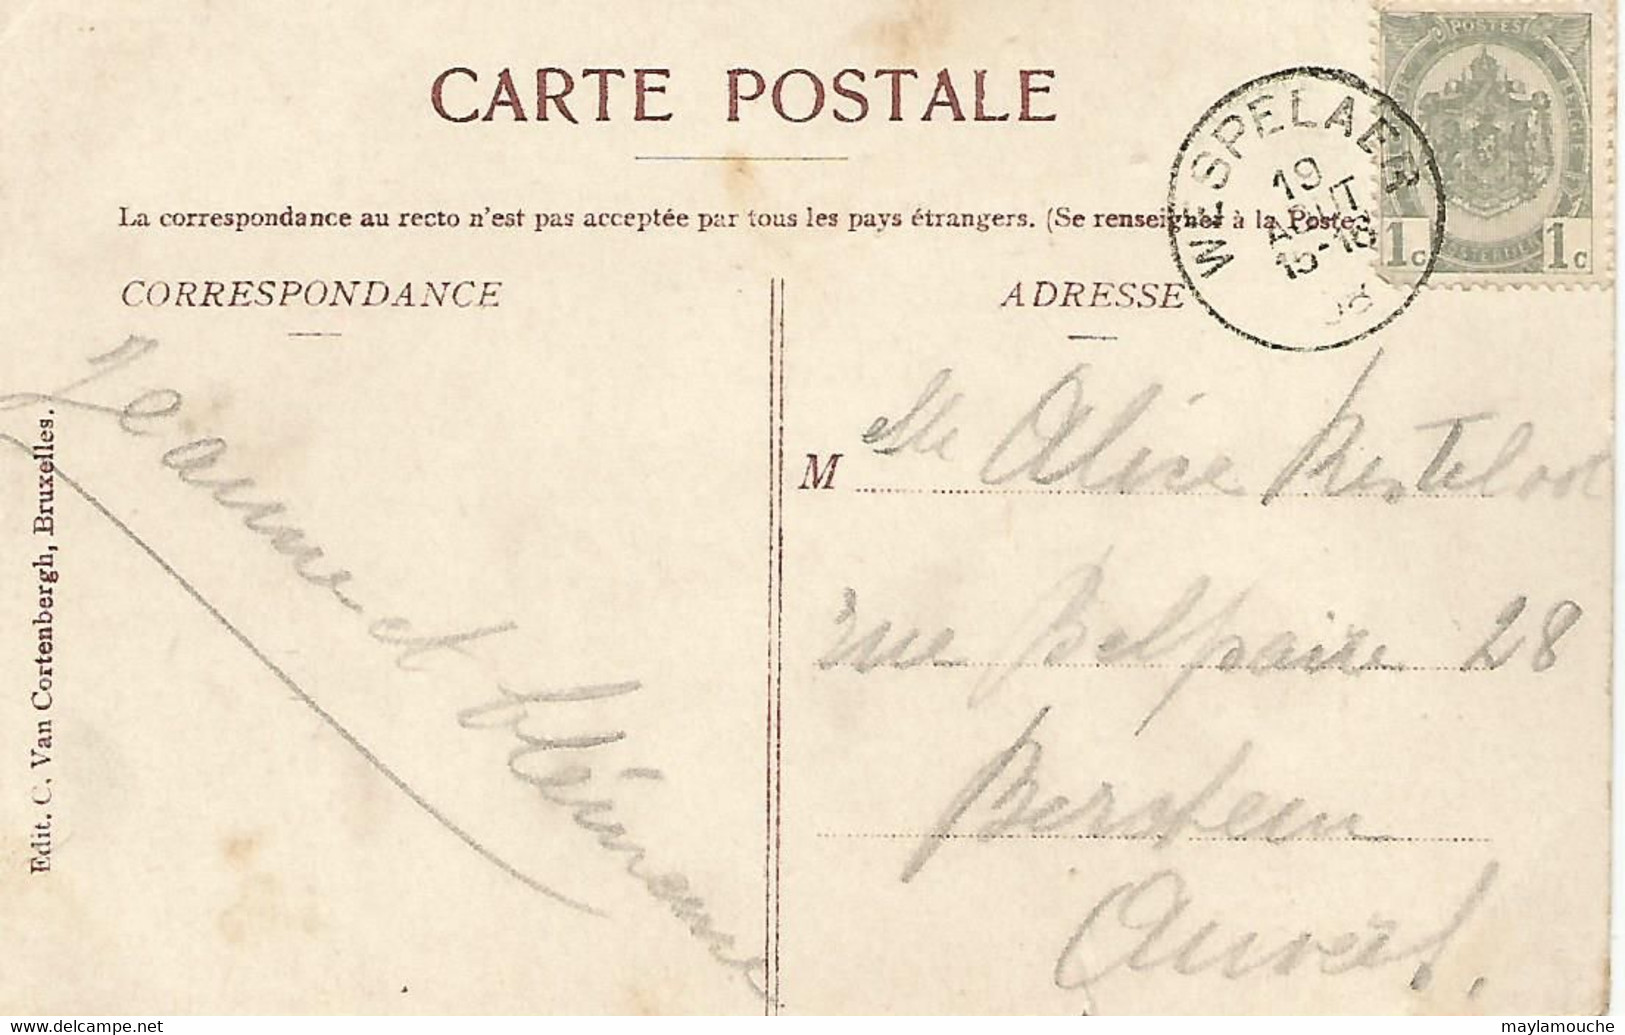 CARTE POSTALE
POSTES
BELGIE
1c 1c
WESPELAER
19
AOUT
15-16
08
La correspondance au recto n'est pas acceptée par tous les pays étrangers. (Se renseigner à la Poste
CORRESPONDANCE
Jeanne et Clémence
Edit. C. Van Cortenbergh, Bruxelles.
ADRESSE
M elle Alice
rue Belpaire 28
Berchem
Anvers.
delcampe.net
maylamouche